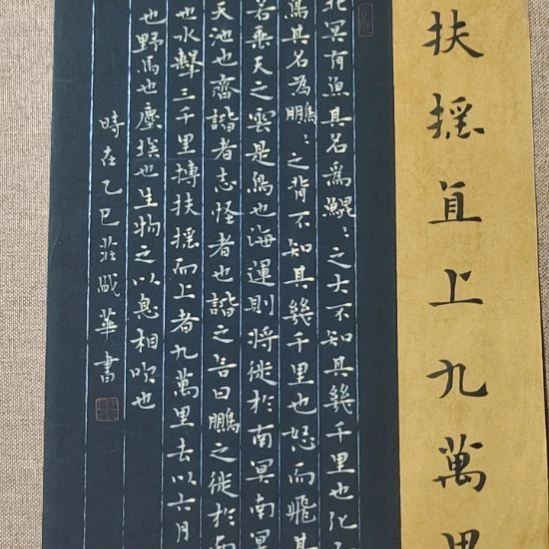 扶摇直上九萬里
北冥有魚其名爲鯤：之大不知其幾千里也化而
鳥其名為鵬：之背不知其幾千里也怒而飛其
若垂天之雲是鳥也海運則將徙於南冥南冥
天池也齊諧者志怪者也諧之言曰鵬之徙於南
也水擊三千里摶扶摇而上者九萬里去以六月
也野馬也塵埃也生物之以息相吹也
時在乙巳莊華書